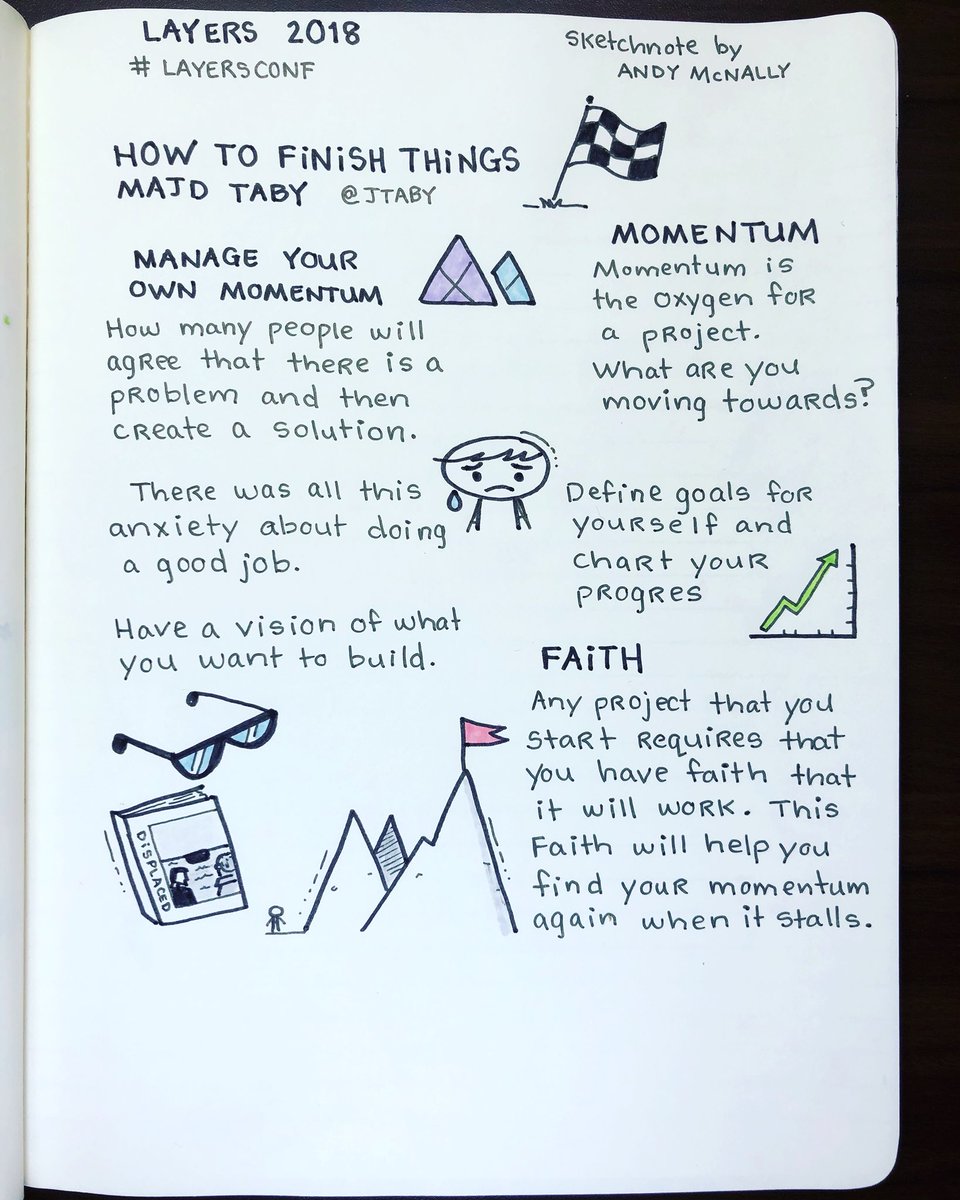 LAYERS 2018
# LAYERSCONF
Sketchnote by
ANDY McNALLY
HOW TO FINISH THINGS
MAJD TABY @JTABY
MANAGE YOUR
OWN MOMENTUM
How many people will
agree that there is a
problem and then
create a solution.
There was all this
anxiety about doing
a good job.
Have a vision of what
you want to build.
DISPLACED
MOMENTUM
Momentum is
the oxygen for
a project.
What are you
moving towards?
Define goals for
yourself and
chart your
progres
FAITH
Any project that you
start requires that
you have faith that
it will work. This
Faith will help you
find your momentum
again when it stalls.